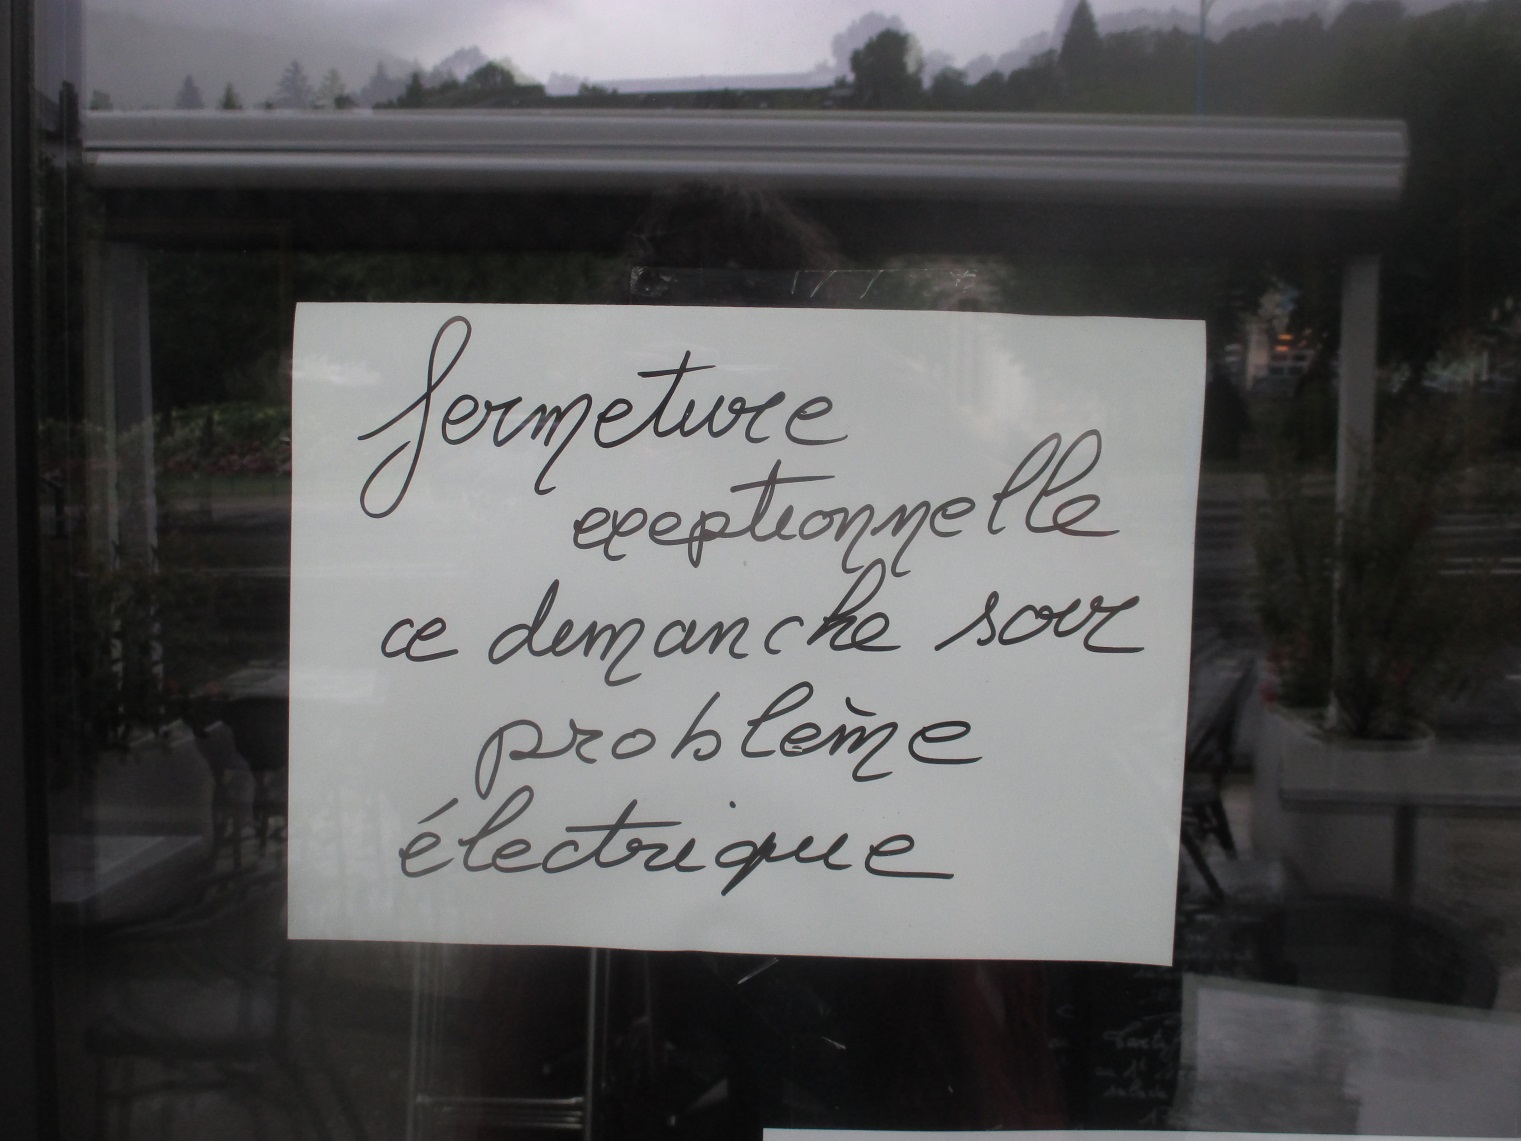 fermeture
exeptionnelle
ce dimanche soir
problème
électrique